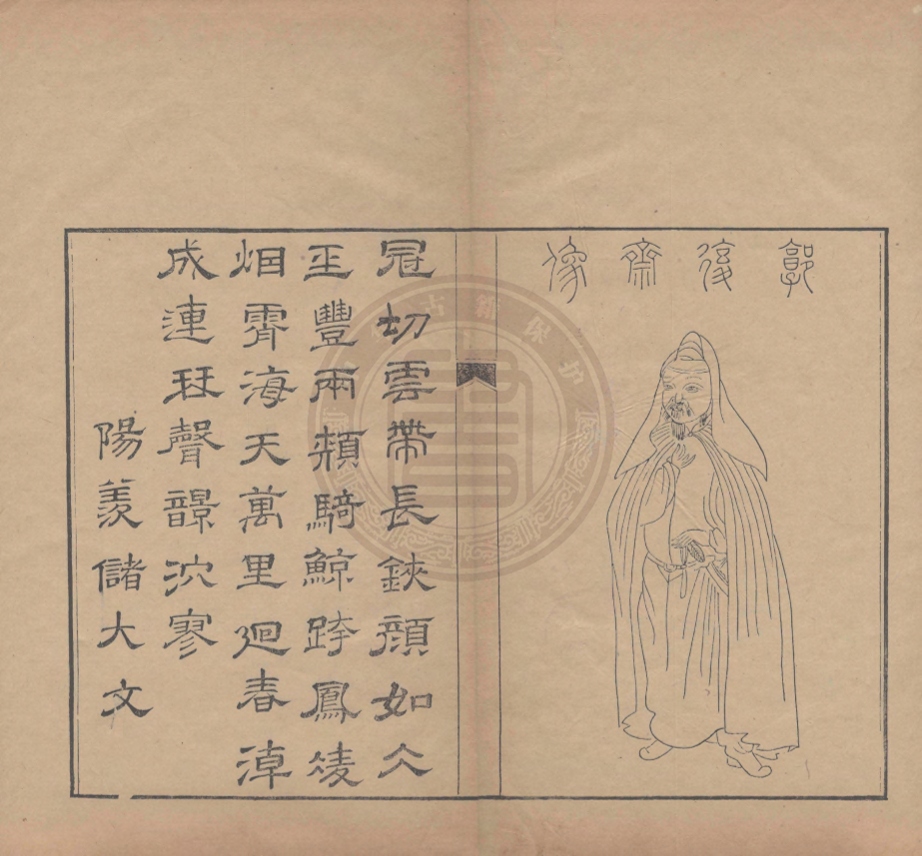 郭復齋像
冠切雲帶長鋏顔如仌
玉豐兩頰騎鯨跨鳳凌
烟霄海天萬里迴春淖
成連珡聲響泬寥
陽羨儲大文